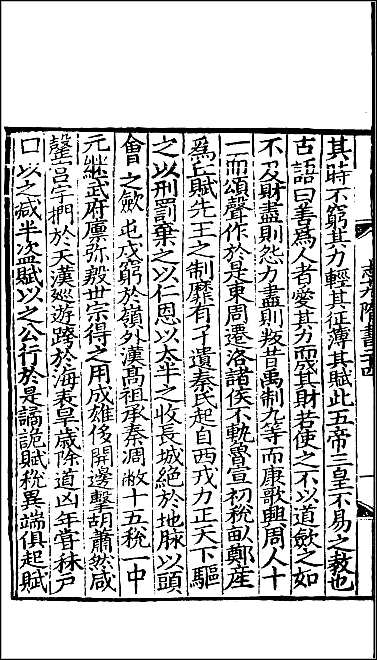 志九 隋書二十四
其時不窮其力輕其征薄其賦此五帝三皇不易之教也
古語曰善爲人者愛其力而成其財若使之不以道斂之如
不及財盡則怨力盡則叛昔禹制九等而康歌興周人十
一而頌聲作於是東周遷洛諸侯不軌魯宣初稅畝鄭産
爲丘賦先王之制靡有孑遺秦氏起自西戎力正天下驅
之以刑罰棄之以仁恩以太半之收長城絶於地脉以頭
會之斂屯戍窮於嶺外漢髙祖承秦凋敝十五稅一中
元繼武府廪弥殷世宗得之用成雄侈開邊擊胡蕭然咸
罄宫宇捫於天漢巡游跨於海表旱歳除道凶年嘗秣户
口以之减半盗賊以之公行於是譎詭賦稅異端俱起賦